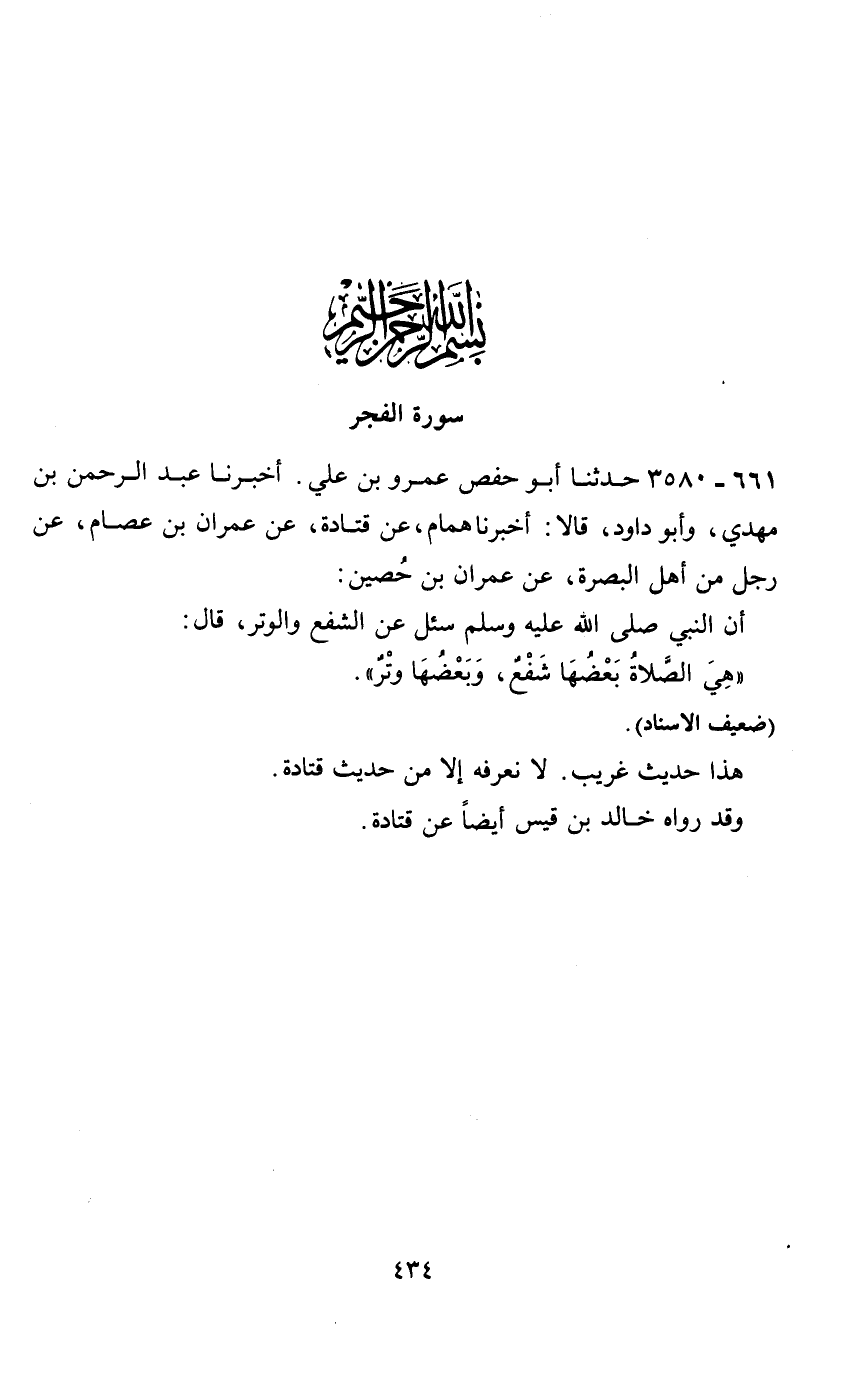 بسم الله الرحمن الرحيم
سورة الفجر
٦٦١ - ٣٥٨٠ حدثنا أبو حفص عمرو بن علي. أخبرنا عبد الرحمن بن
مهدي، وأبو داود، قالا: أخبرنا همام، عن قتادة، عن عمران بن عصام، عن
رجل من أهل البصرة، عن عمران بن حُصين:
أن النبي صلى الله عليه وسلم سئل عن الشفع والوتر، قال:
«هِيَ الصَّلاةُ بَعْضُهَا شَفْعٌ، وَبَعْضُهَا وتْرٌ».
(ضعيف الاسناد).
هذا حديث غريب. لا نعرفه إلا من حديث قتادة.
وقد رواه خالد بن قيس أيضاً عن قتادة.
٤٣٤